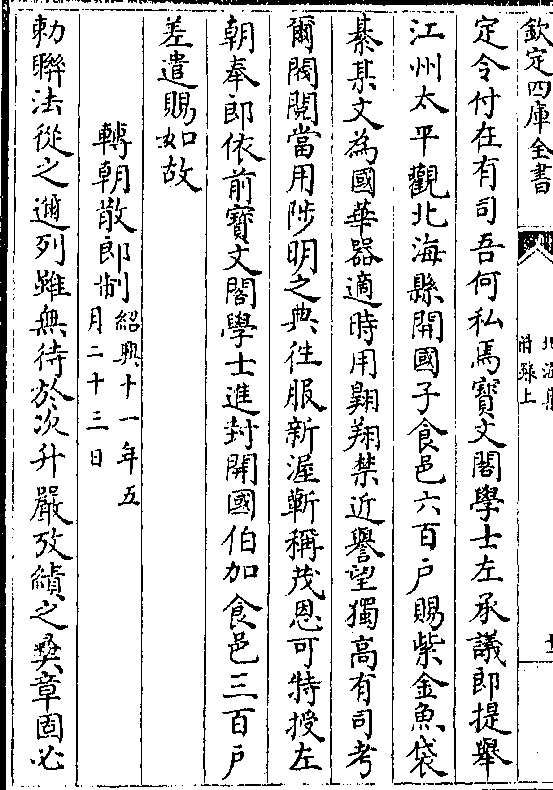 欽定四庫全書
附錄上
定令付在有司吾何私焉寳文閣學士左承議郎提舉
江州太平觀北海縣開國子食邑六百户賜紫金魚袋
綦某文為國華器適時用翺翔禁近譽望獨高有司考
爾閥閲當用陟明之典徃服新渥蘄稱茂恩可特授左
朝奉郎依前寳文閣學士進封開國伯加食邑三百户
差遣賜如故
轉朝散郎制紹興十一年五
月二十三日
勅聯法從之邇列雖無待於次升嚴攷績之彝章固必